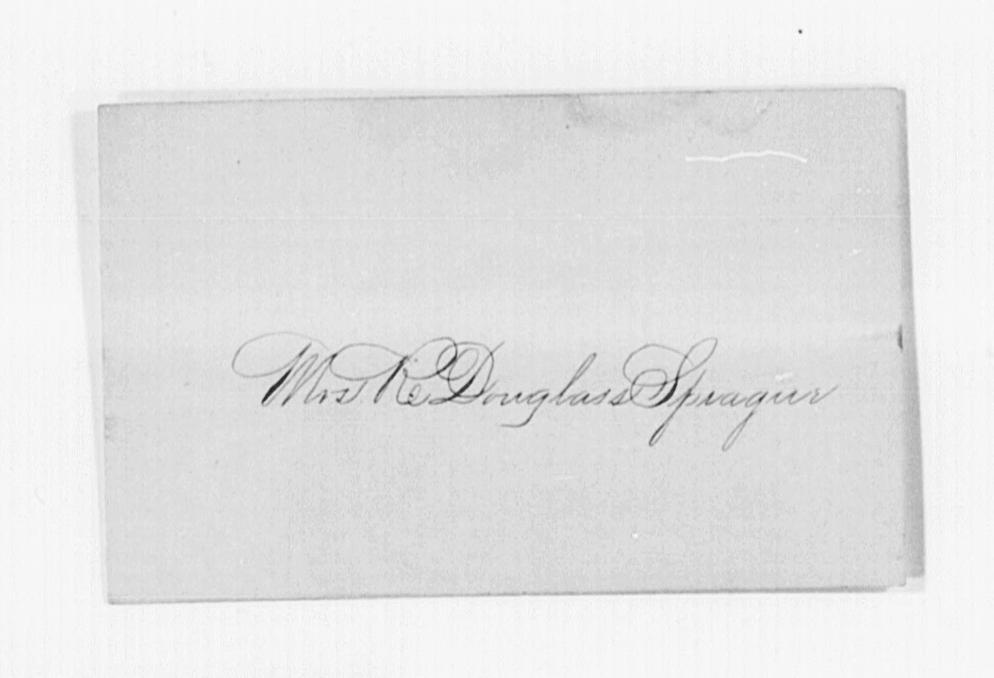 Mrs R Douglass Sprague